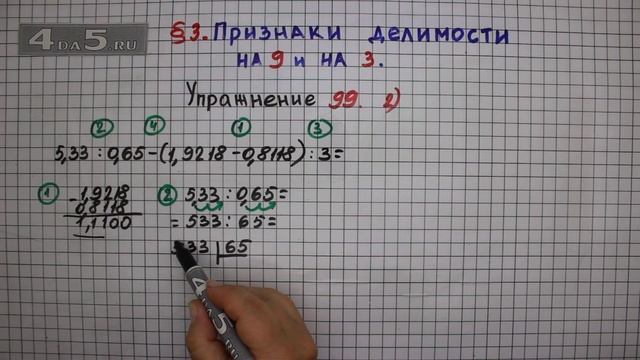 4DA5.RU
§3. Признаки делимости
на 9 и на 3.
Упражнение 99. 2)
② ④ ① ③
5,33 : 0,65 - (1,9218 - 0,8118) : 3 =
① - 1,9218
0,8118
1,1100
② 5,33 : 0,65 =
= 533 : 65 =
533 | 65
4DA5.RU